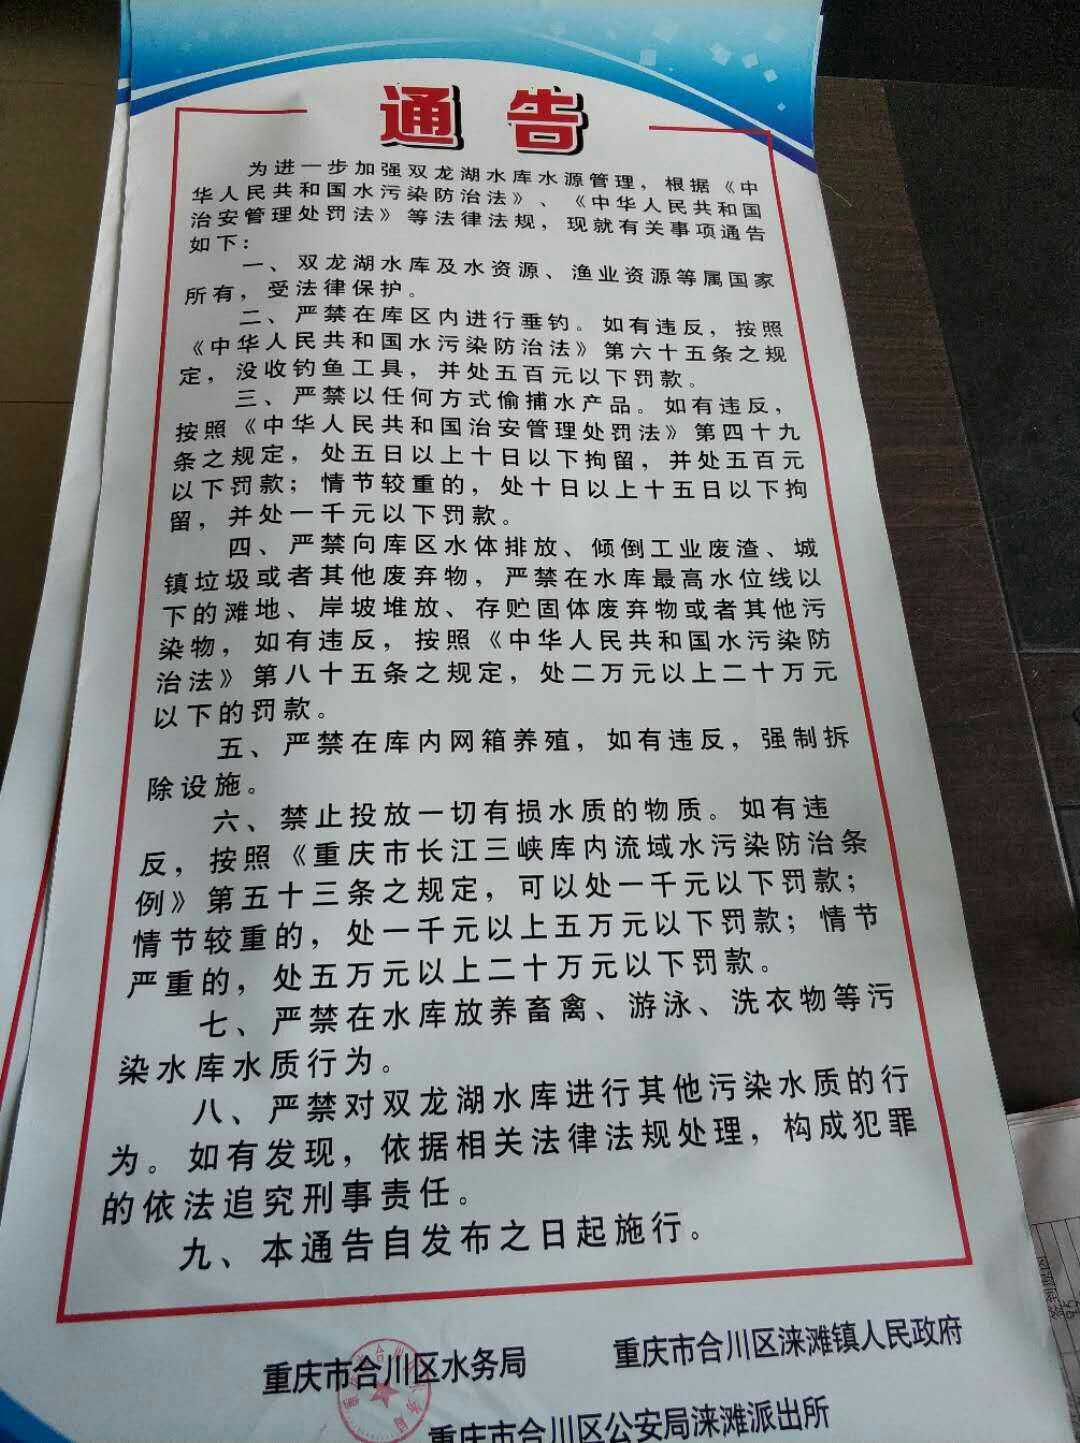 通告
为进一步加强双龙湖水库水源管理，根据《中
华人民共和国水污染防治法》、《中华人民共和国
治安管理处罚法》等法律法规，现就有关事项通告
如下：
一、双龙湖水库及水资源、渔业资源等属国家
所有，受法律保护。
二、严禁在库区内进行垂钓。如有违反，按照
《中华人民共和国水污染防治法》第六十五条之规
定，没收钓鱼工具，并处五百元以下罚款。
三、严禁以任何方式偷捕水产品。如有违反，
按照《中华人民共和国治安管理处罚法》第四十九
条之规定，处五日以上十日以下拘留，并处五百元
以下罚款；情节较重的，处十日以上十五日以下拘
留，并处一千元以下罚款。
四、严禁向库区水体排放、倾倒工业废渣、城
镇垃圾或者其他废弃物，严禁在水库最高水位线以
下的滩地、岸坡堆放、存贮固体废弃物或者其他污
染物，如有违反，按照《中华人民共和国水污染防
治法》第八十五条之规定，处二万元以上二十万元
以下的罚款。
五、严禁在库内网箱养殖，如有违反，强制拆
除设施。
六、禁止投放一切有损水质的物质。如有违
反，按照《重庆市长江三峡库内流域水污染防治条
例》第五十三条之规定，可以处一千元以下罚款；
情节较重的，处一千元以上五万元以下罚款；情节
严重的，处五万元以上二十万元以下罚款。
七、严禁在水库放养畜禽、游泳、洗衣物等污
染水库水质行为。
八、严禁对双龙湖水库进行其他污染水质的行
为。如有发现，依据相关法律法规处理，构成犯罪
的依法追究刑事责任。
九、本通告自发布之日起施行。
重庆市合川区水务局 重庆市合川区涞滩镇人民政府
重庆市合川区公安局涞滩派出所